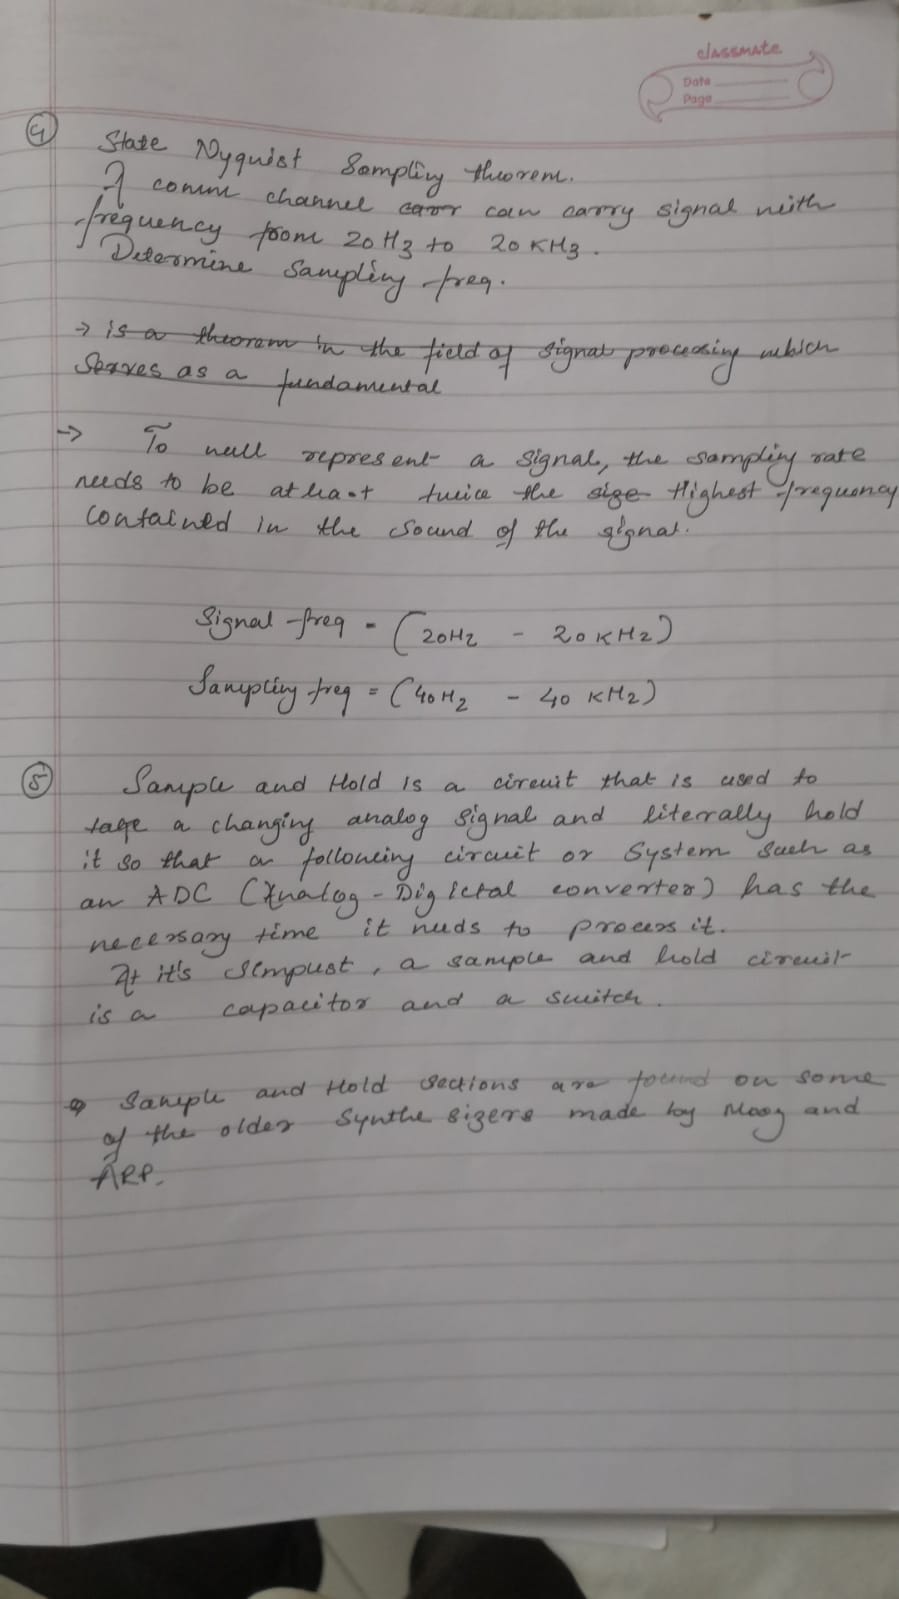 classmate
Date
Page
4 State Nyquist Sampling theorem.
A comm channel can carry signal with
frequency from 20 Hz to 20 KHz.
Determine Sampling freq.
→ is a theorem in the field of signal processing which
Serves as a fundamental
→ To well represent a signal, the sampling rate
needs to be atleast twice the size Highest frequency
contained in the sound of the signal.
Signal freq = (20Hz - 20 KHz)
Sampling freq = (40Hz - 40 KHz)
5 Sample and Hold is a circuit that is used to
a changing analog signal and literrally hold
it so that a following circuit or System such as
an ADC (Analog - Digictal converter) has the
necessary time it needs to process it.
At it's simpust, a sample and hold circuit
is a capacitor and a switch.
Sample and Hold sections are found on some
of the older Synthe sizers made by Moog and
ARP.